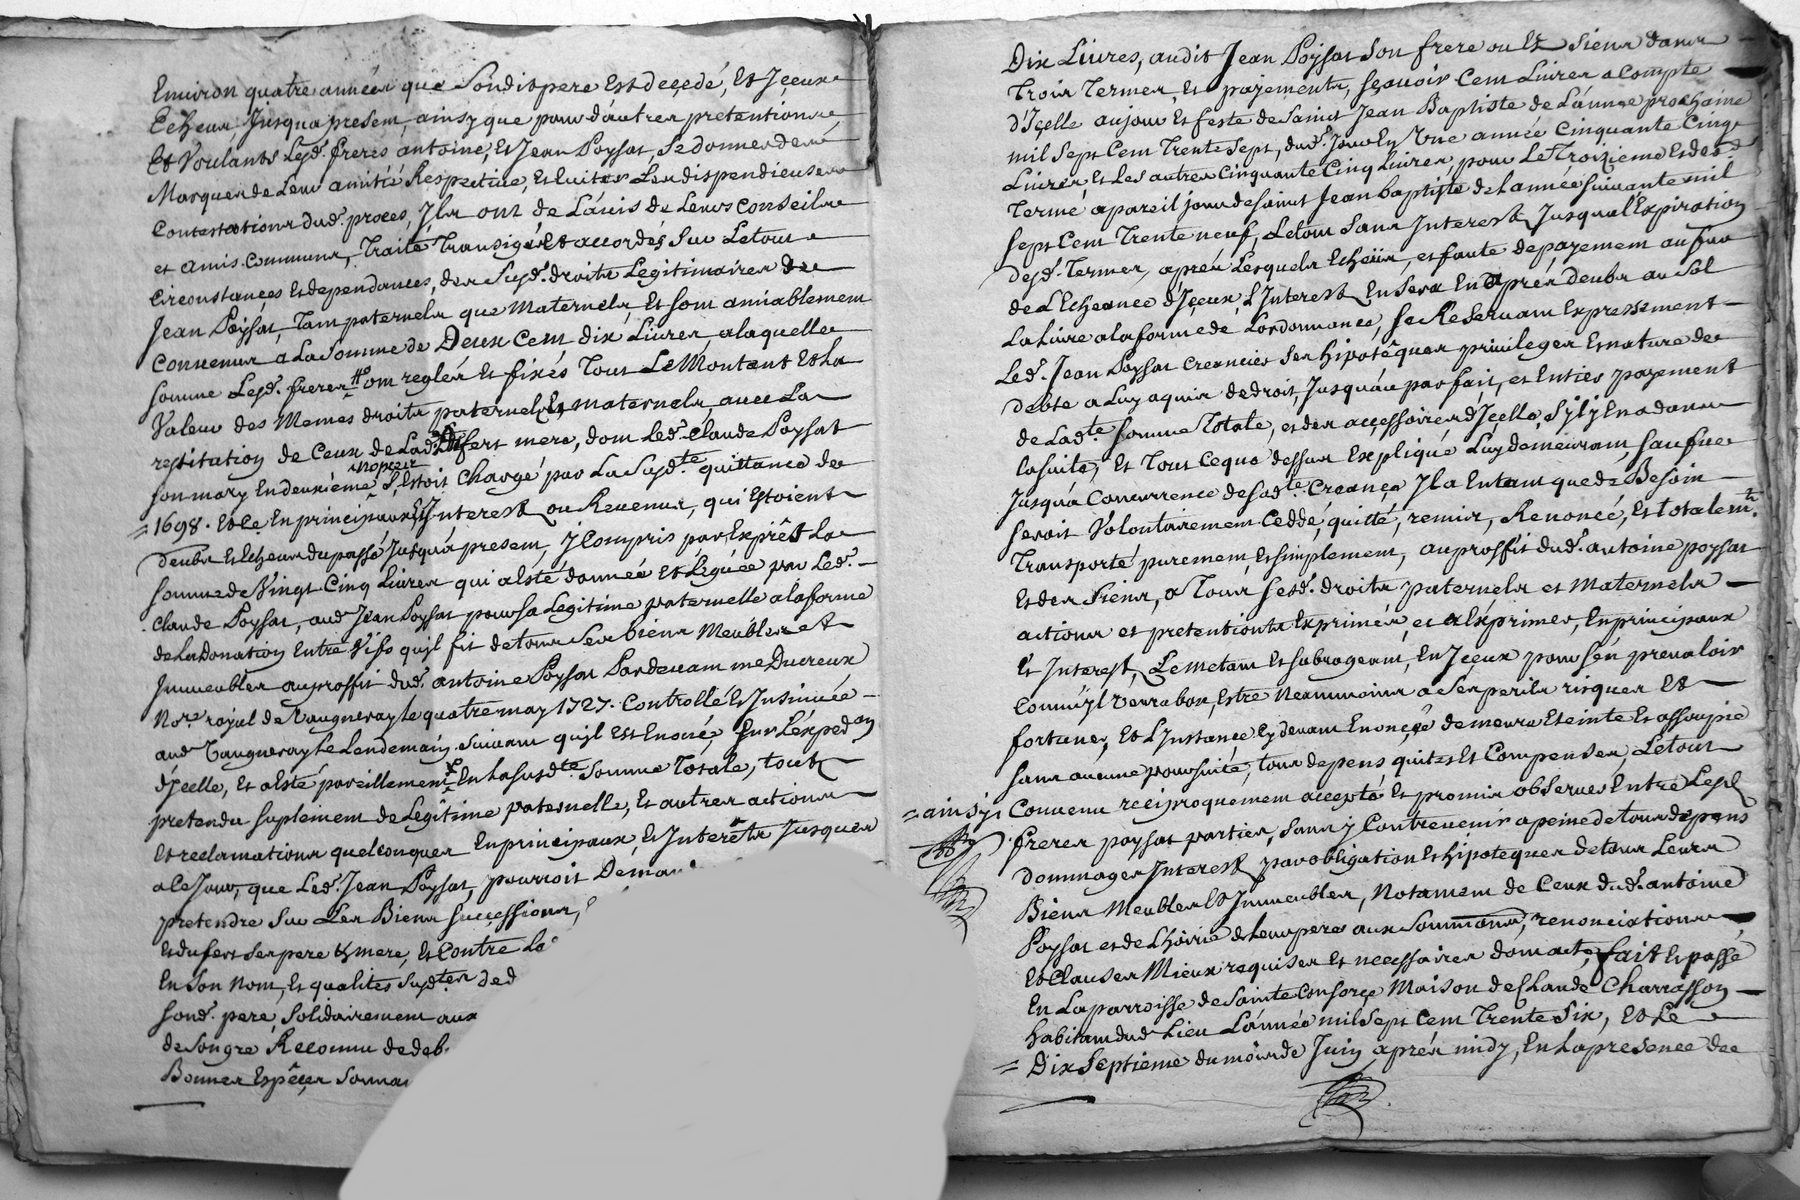 Environ quatre années que Sondit pere Est deçedé, Et Jçeux
Echeus Jusqua present, ainsy que pour d'autres pretentions
Et Voulants Lesd. freres antoine, Et Jean Poysat, Se donner des
Marques de Leur amitié Respective, Et Euiter Les dispendieuses
Contestations dud. proces, Jls ont de L'auis de Leurs Conseils
et amis Communs, Traité Transigés Et accordés Sur Letout
Circonstances Et dependances, des Susd. droits Legitimaires de
Jean Poÿsat, Tam paternels que Maternels, Et Sont amiablement
Convenus a La Somme de Deux Cent dix Liures, a laquelle
Somme Lesd. freres ont reglés Et fixés Tout Le Montant Et La
Valeur des Memes droits paternels, Et maternels, auec La
restitution de Ceux de Lad. Dufert mere, dont Led. Claude Poysat
Son mary En deuxieme nopces S'Estoit Chargé par La Susd.te quittance de
= 1698. Et Ce En principaux, Et Jnterest ou Reuenus, qui Estoient
deubs Et Echeus du passé Jusqu'a present, y Compris par Exprês La
Somme de Vingt Cinq Liures qui a Esté donnée Et Léguée par Led.
Claude Poysat, aud. Jean Poysat pour Sa Legitime paternelle a la forme
de La Donation Entre Vifs qu'jl fit de tous Ses biens Meubles et
Jmmeubles au proffit dud. antoine Poysat Pardeuant me Ducreux
No.re royal de Vaugneray le quatre may 1727. Controllé Et Jnsinuée
aud. Vaugneray Le Lendemain Suiuant qu'jl Est Enoncé Sur L'Expedon
d'Jcelle, Et a Esté pareillement En La Susd.te Somme Totale, tout
pretendu Suplement de Legitime paternelle, Et autres actions
Et reclamations quelconques En principaux, Et Jnterêts Jusques
a Ce Jour, que Led. Jean Poysat, pourroit Deman
pretendre Sur Les Biens Successions,
Et dufert Ses pere & mere, Et Contre La
En Son Nom, Et qualités Susd.tes de d
Sond. pere, Solidairement aux
de Son gre Reconnu de deb
Bonnes Espêces Sonna
Dix Liures, audit Jean Poÿsat Son frere ou Et Siens dans
Trois Termes, Et payements, Sçauoir Cent Liures a Compte
d'Jçelle au jour Et feste de Saint Jean Baptiste de L'année prochaine
mil Sept Cent Trente Sept, dud. Jour En Vne année Cinquante Cinq
Liures, Et Les autres Cinquante Cinq Liures, pour Le Troizieme Et der
Terme a pareil jour de Saint Jean baptiste de L'année Suiuante mil
Sept Cent Trente neuf, Letout Sans Jnterest Jusqual'Expiration
desd. Termes, aprés Lesquels Echeüs, et faute de payement au fur
de L'Echeance d'Jçeux, L'Jnterest En Sera En aprés deubt au Sol
La Liure a la forme de L'ordonnance, Se Reseruant Expressement
Led. Jean Poysat Creancier Ses hipotêques priuileges Et nature de
debte a Luy aquis de droit, Jusquau parfait, et Entier payement
de Lad.te Somme Totale, et des accessoires d'Jcelle, S'jl y En a dans
la Suite, Et Tout Ceque dessus Expliqué Luy demeurant Sauf
Jusqu'a Concurrence de Sad.te Creance Jl a Entant que de Besoin
Seroit Volontairement Cedde, quitté, remis, Renoncé, Et totalem.t
Transporté purement Et Simplement, au proffit dud. antoine poysat
Et des Siens, a Tous Sesd. droits paternels et Maternels
actions et pretentions Exprimés, et a Exprimer, En principaux
Et Jnterest, Le metant Et Subrogeant, En Jceux pour S'en preualoir
Comm'jl Verra bon, Estre Neanmoins a Ses perils risques Et
fortunes, Et L'Jnstance Cy deuant Enoncée demeure Eteinte Et assoupie
Sans aucune poursuite, tous depens quites Et Compensés, Letout
=ainsy Conuenu reciproquement accepté Et promis obseruer Entre Lesd
freres poysat parties, Sans y Contreuenir a peine de tous depens
dommages Jnterest par obligation Et hipoteques de tous Leurs
Biens Meubles Et Jmmeubles, Notament de Ceux dud. antoine
Poysat et de L'hoirie de Leur pere aux Soumissions, renonciations
Et Clauses Mieux requises Et necessaires dont acte, fait Et passé
En La parroisse de Sainte Consorce Maison de Claude Charrasson
habitant dud. Lieu L'année mil Sept Cent Trente Six, Et Le
= Dix Septieme du mois de Juin aprés midy, En La presence de